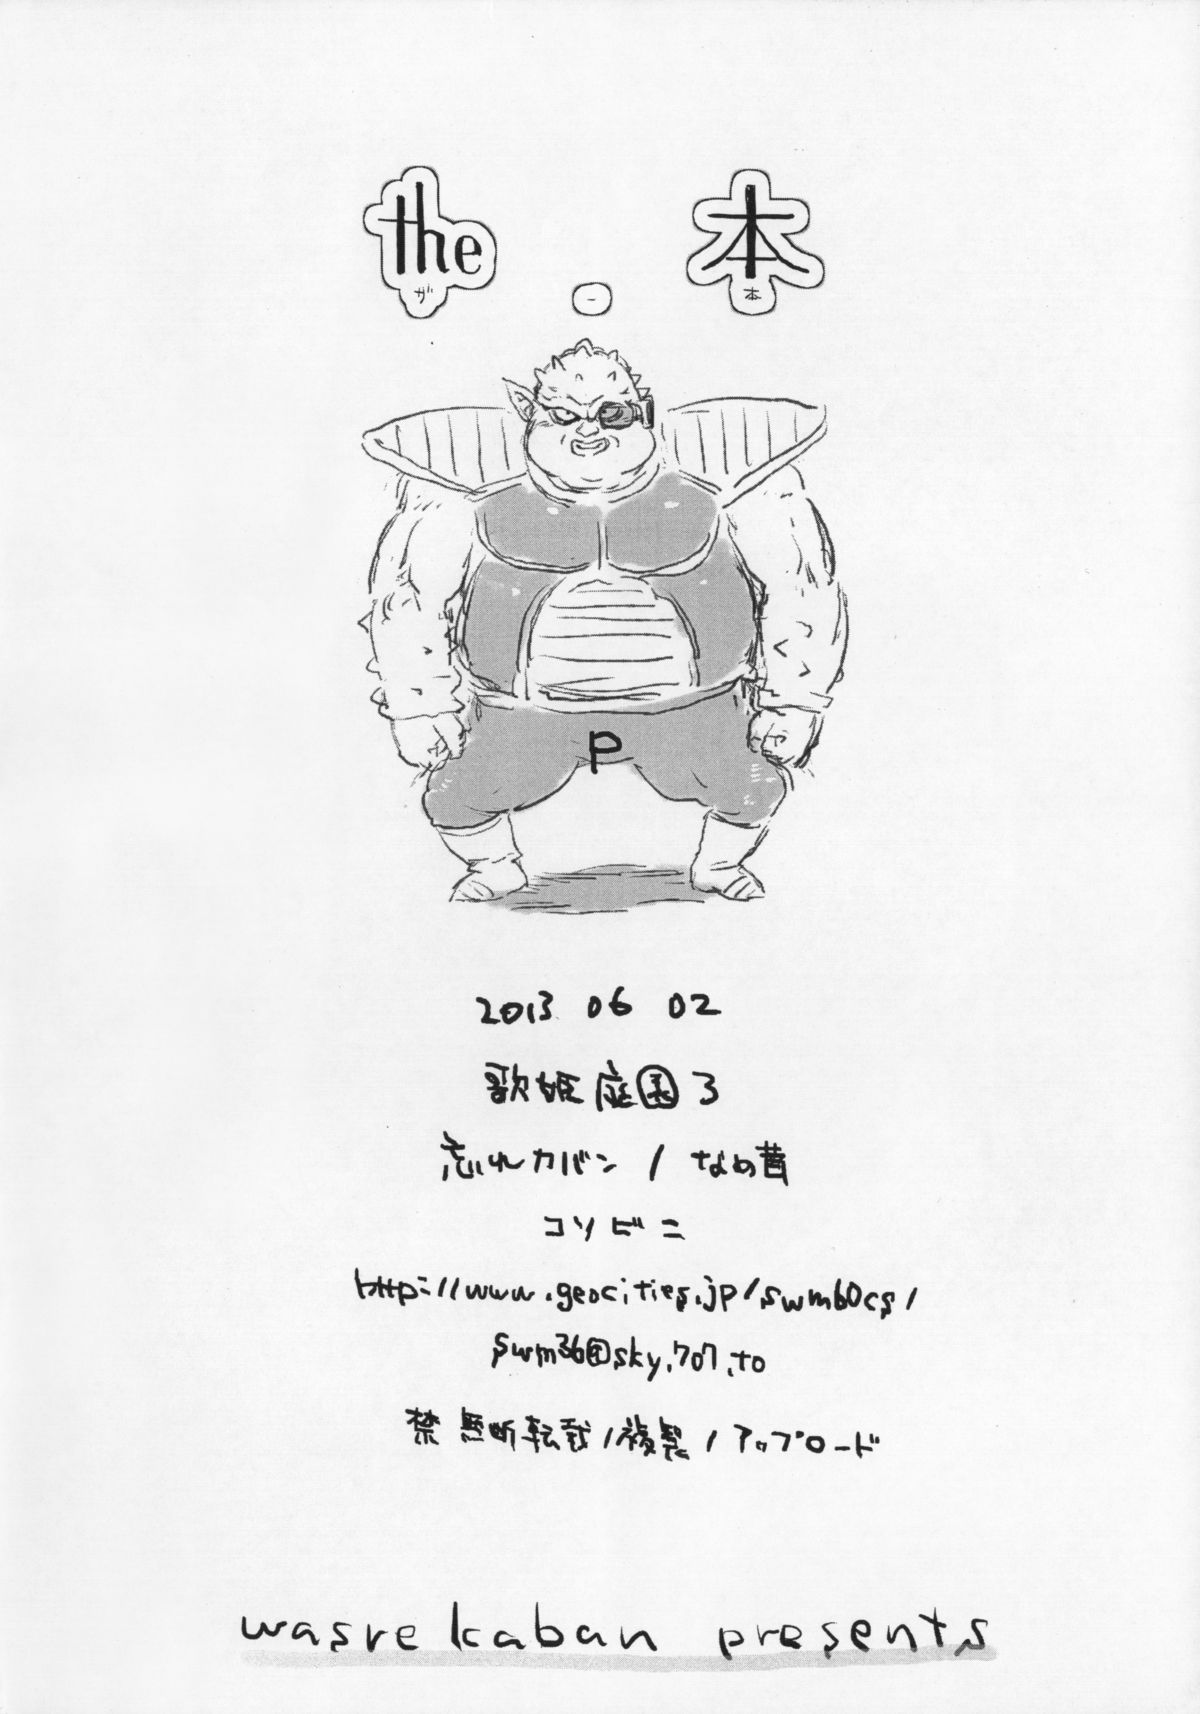 the - 本
ザ 本
P
2013 06 02
歌姫庭園3
忘れカバン / なめ茸
コンビニ
http://www.geocities.jp/swm60cs/
swm36@sky.707.to
禁 無断転載/複製/アップロード
wasre kaban presents